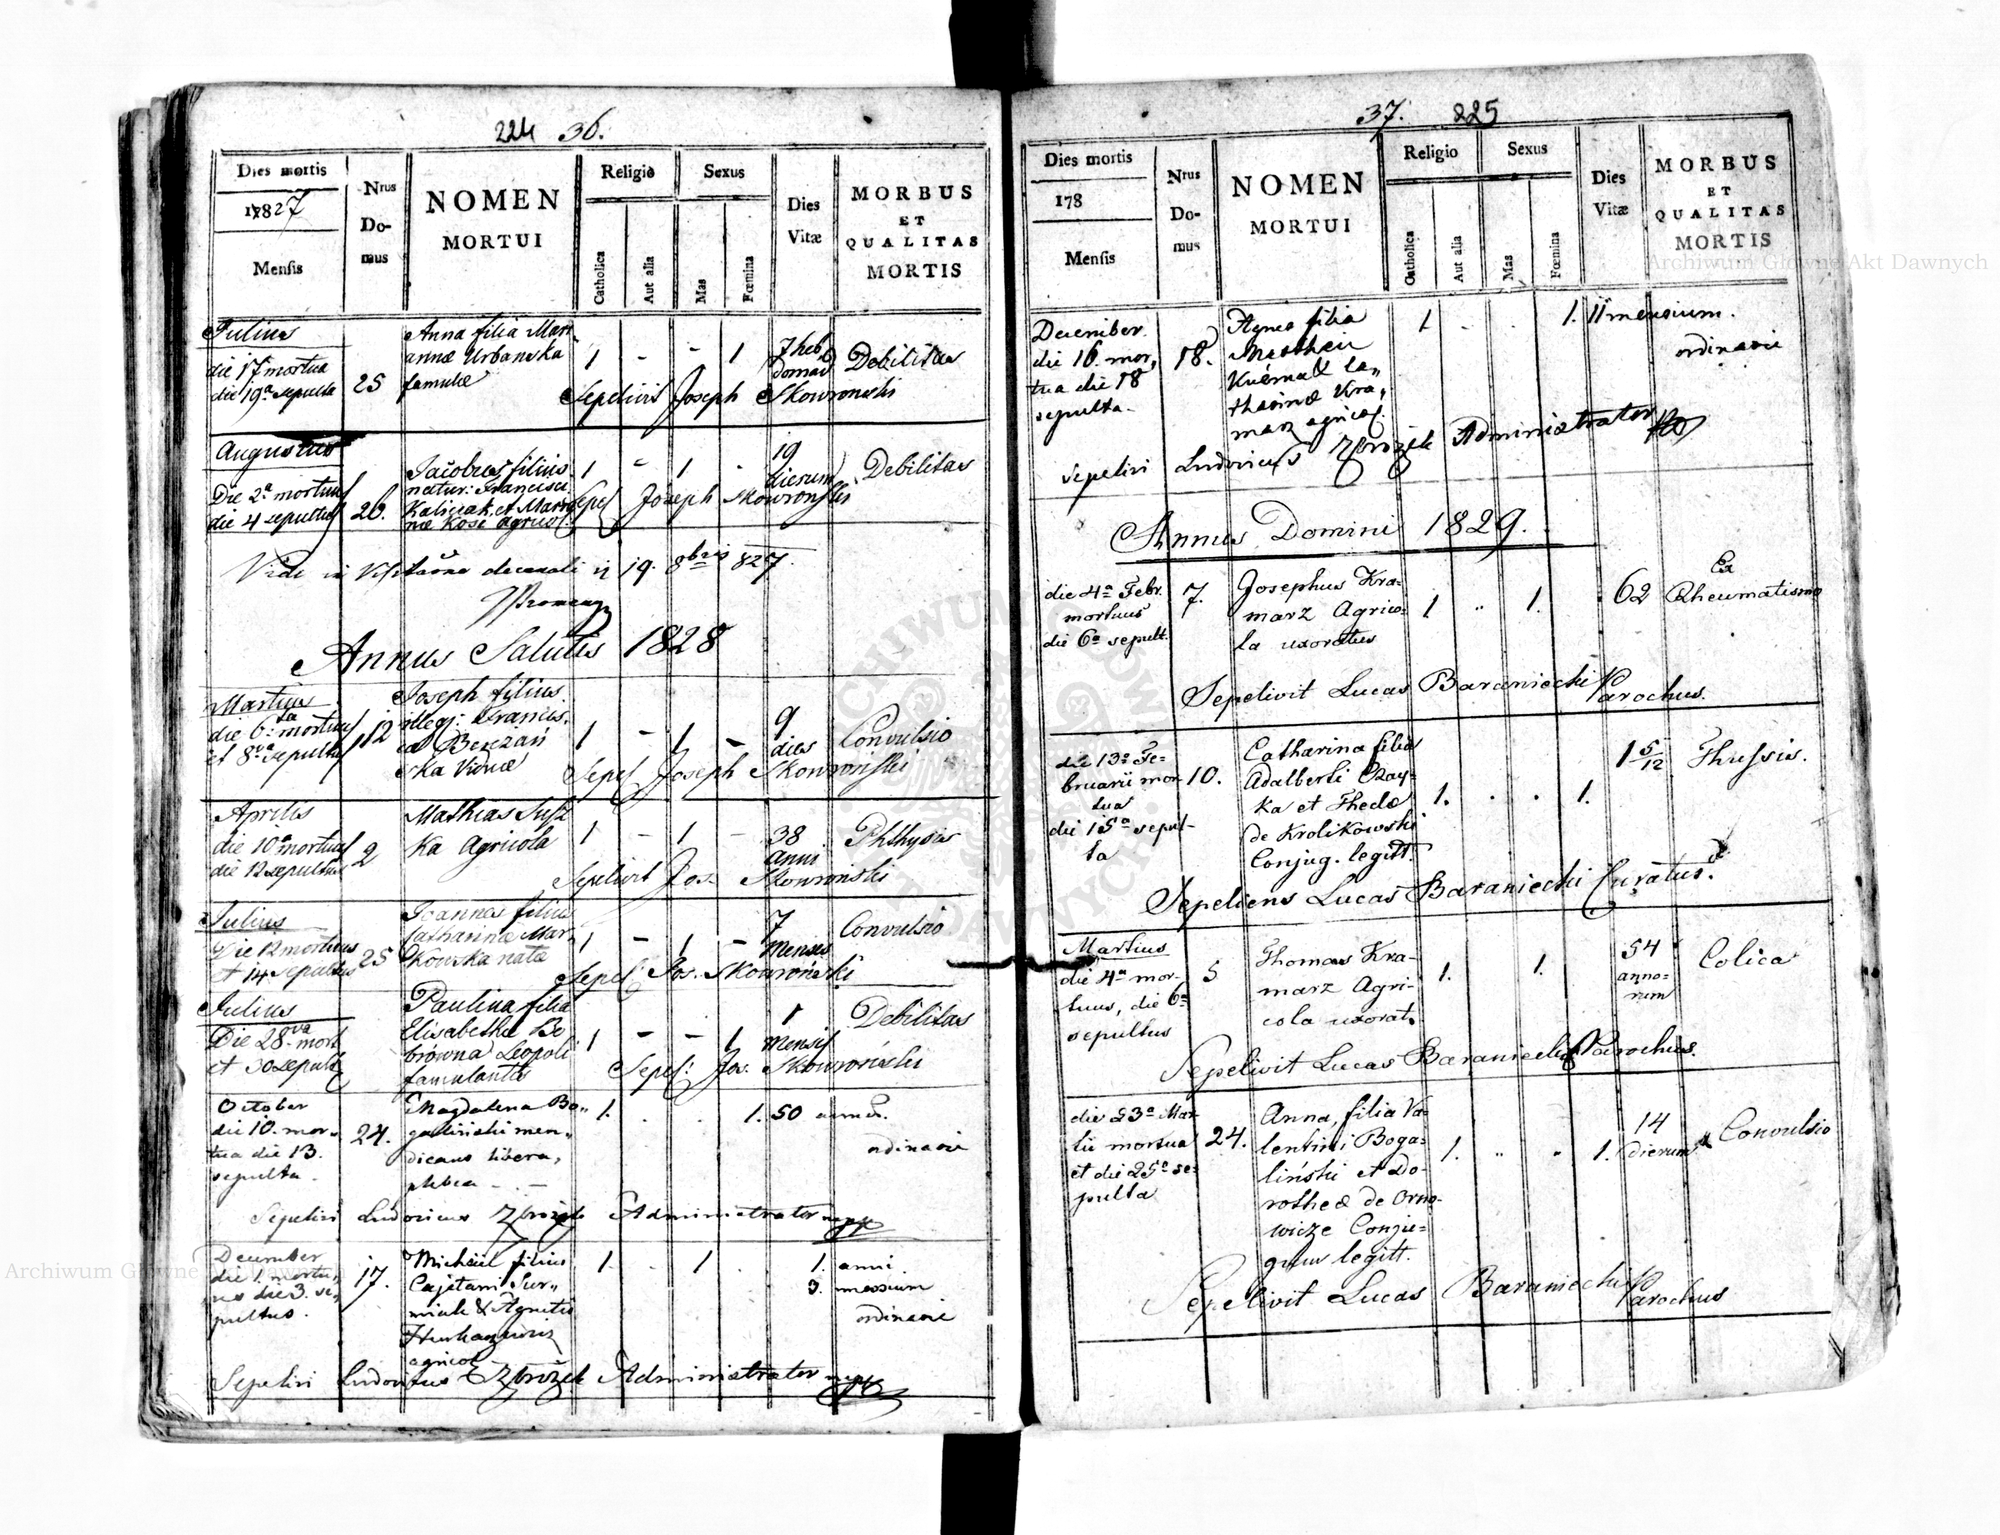 224 36.
Dies mortis
1827
Mensis
Nrus
Do-
mus
NOMEN
MORTUI
Religio
Catholica
Aut alia
Sexus
Mas
Fœmina
Dies
Vitæ
MORBUS
ET
QUALITAS
MORTIS
Julius
die 17 mortua
die 19a sepulta
25
Anna filia Mari
annæ Urbanska
famulæ
1 - - 1
7 heb
domad
Debilitas
Sepelivit Joseph Skowroński
Augustus
Die 2a mortuus
die 4 sepultus
26.
Jacobus filius
natur: Francisci
Kaliciak et Mari
næ Kose agricol
1 - 1 -
19
dierum
Debilitas
Sepel Joseph Skowroński
Vidi in Visitaõne decanali 19. 8bris 827.
Annus Salutis 1828
Martius
die 6ta mortuus
et 8va sepultus
112
Joseph filius
illegi: Francis.
cæ Berezań
ska Viduæ
1 - 1 -
9
dies
Convulsio
Sepel Joseph Skowroński
Aprilis
die 10a mortuus
die 12 sepultus
2
Mathias Susz
ka Agricola
1 - 1 -
38
anni
Phthysis
Sepelivit Jos. Skowroński
Julius
Die 12 mortuus
et 14 sepultus
25
Joannes filius
Catharinæ Mar
kowska natæ
1 - 1 -
7
Menses
Convulsio
Sepel Jos. Skowroński
Julius
Die 28va mort
et 30 sepult
Paulina filia
Elisabethæ Bo
browna Leopoli
famulantis
1 - - 1
1
Mensis
Debilitas
Sepel: Jos. Skowroński
October
die 10. mor„
tua die 13.
sepulta.
24.
Magdalena Bo„
galinski men„
dicans libera,
plebea
1. . . 1.
50 annor.
ordinarii
Sepelivi Ludovicus Zbrożek Administrator mpp
December
die 1. mortu„
us die 3. se„
pultus.
17.
Michael filius
Cajetani Sur„
miak & Agnetis
agricol
1. . 1 .
1. anni
3. mensium
ordinarii
Sepelivi Ludovicus Zbrożek Administrator mpp
37. 225
Dies mortis
178
Mensis
Nrus
Do-
mus
NOMEN
MORTUI
Religio
Catholica
Aut alia
Sexus
Mas
Fœmina
Dies
Vitæ
MORBUS
ET
QUALITAS
MORTIS
December.
die 16. mor„
tua die 18
sepulta.
18.
Agnes filia
Matthei
Kuśma & Ca„
tharinæ Kra„
marz agricol.
1 . . 1.
11 mensium.
ordinarii
Sepelivi Ludovicus Zbrożek Administrator
Annus Domini 1829.
die 4a Febr.
mortuus
die 6a sepult.
7.
Josephus Kra-
marz Agrico-
la uxoratus
1 „ 1.
62
Ex
Rheumatismo
Sepelivit Lucas Baraniecki Parochus.
die 13a Fe-
bruarii mor-
tua
die 15a sepul-
ta
10.
Catharina filia
Adalberti Czay-
ka et Theclæ
de Krolikowski
Conjug. legitt.
1. . . 1.
1 5/12
Thussis.
Sepeliens Lucas Baraniecki Curatus.
Martius
die 4a mor-
tuus, die 6a
sepultus
5
Thomas Kra-
marz Agri-
cola uxorat.
1. 1.
54
anno-
rum
Colica
Sepelivit Lucas Baraniecki Parochus.
die 23a Mar
tii mortua
et die 25a se-
pulta
24.
Anna, filia Va-
lentini Boga-
liński et Do-
rotheæ de Orno-
wicze Conju-
gum legitt.
1. „ „ 1.
14
dierum
Convulsio
Sepelivit Lucas Baraniecki Parochus
Archiwum Główne Akt Dawnych
Archiwum Główne Akt Dawnych